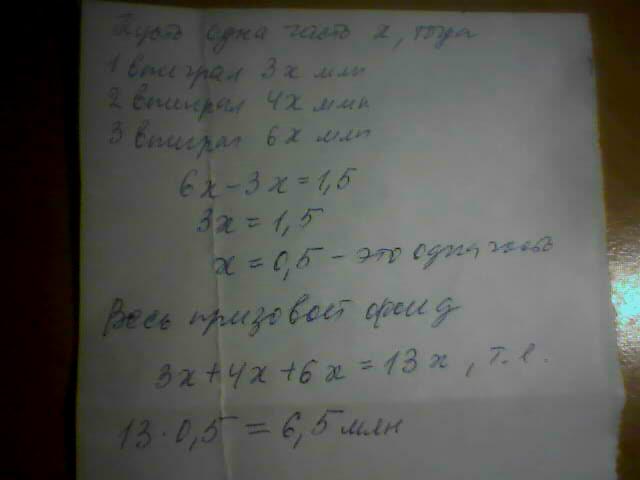 Пусть одна часть x, тогда
1 выиграл 3x млн
2 выиграл 4x млн
3 выиграл 6x млн
6x - 3x = 1,5
3x = 1,5
x = 0,5 - это одна часть
Весь призовой фонд
3x + 4x + 6x = 13x, т.е.
13 · 0,5 = 6,5 млн